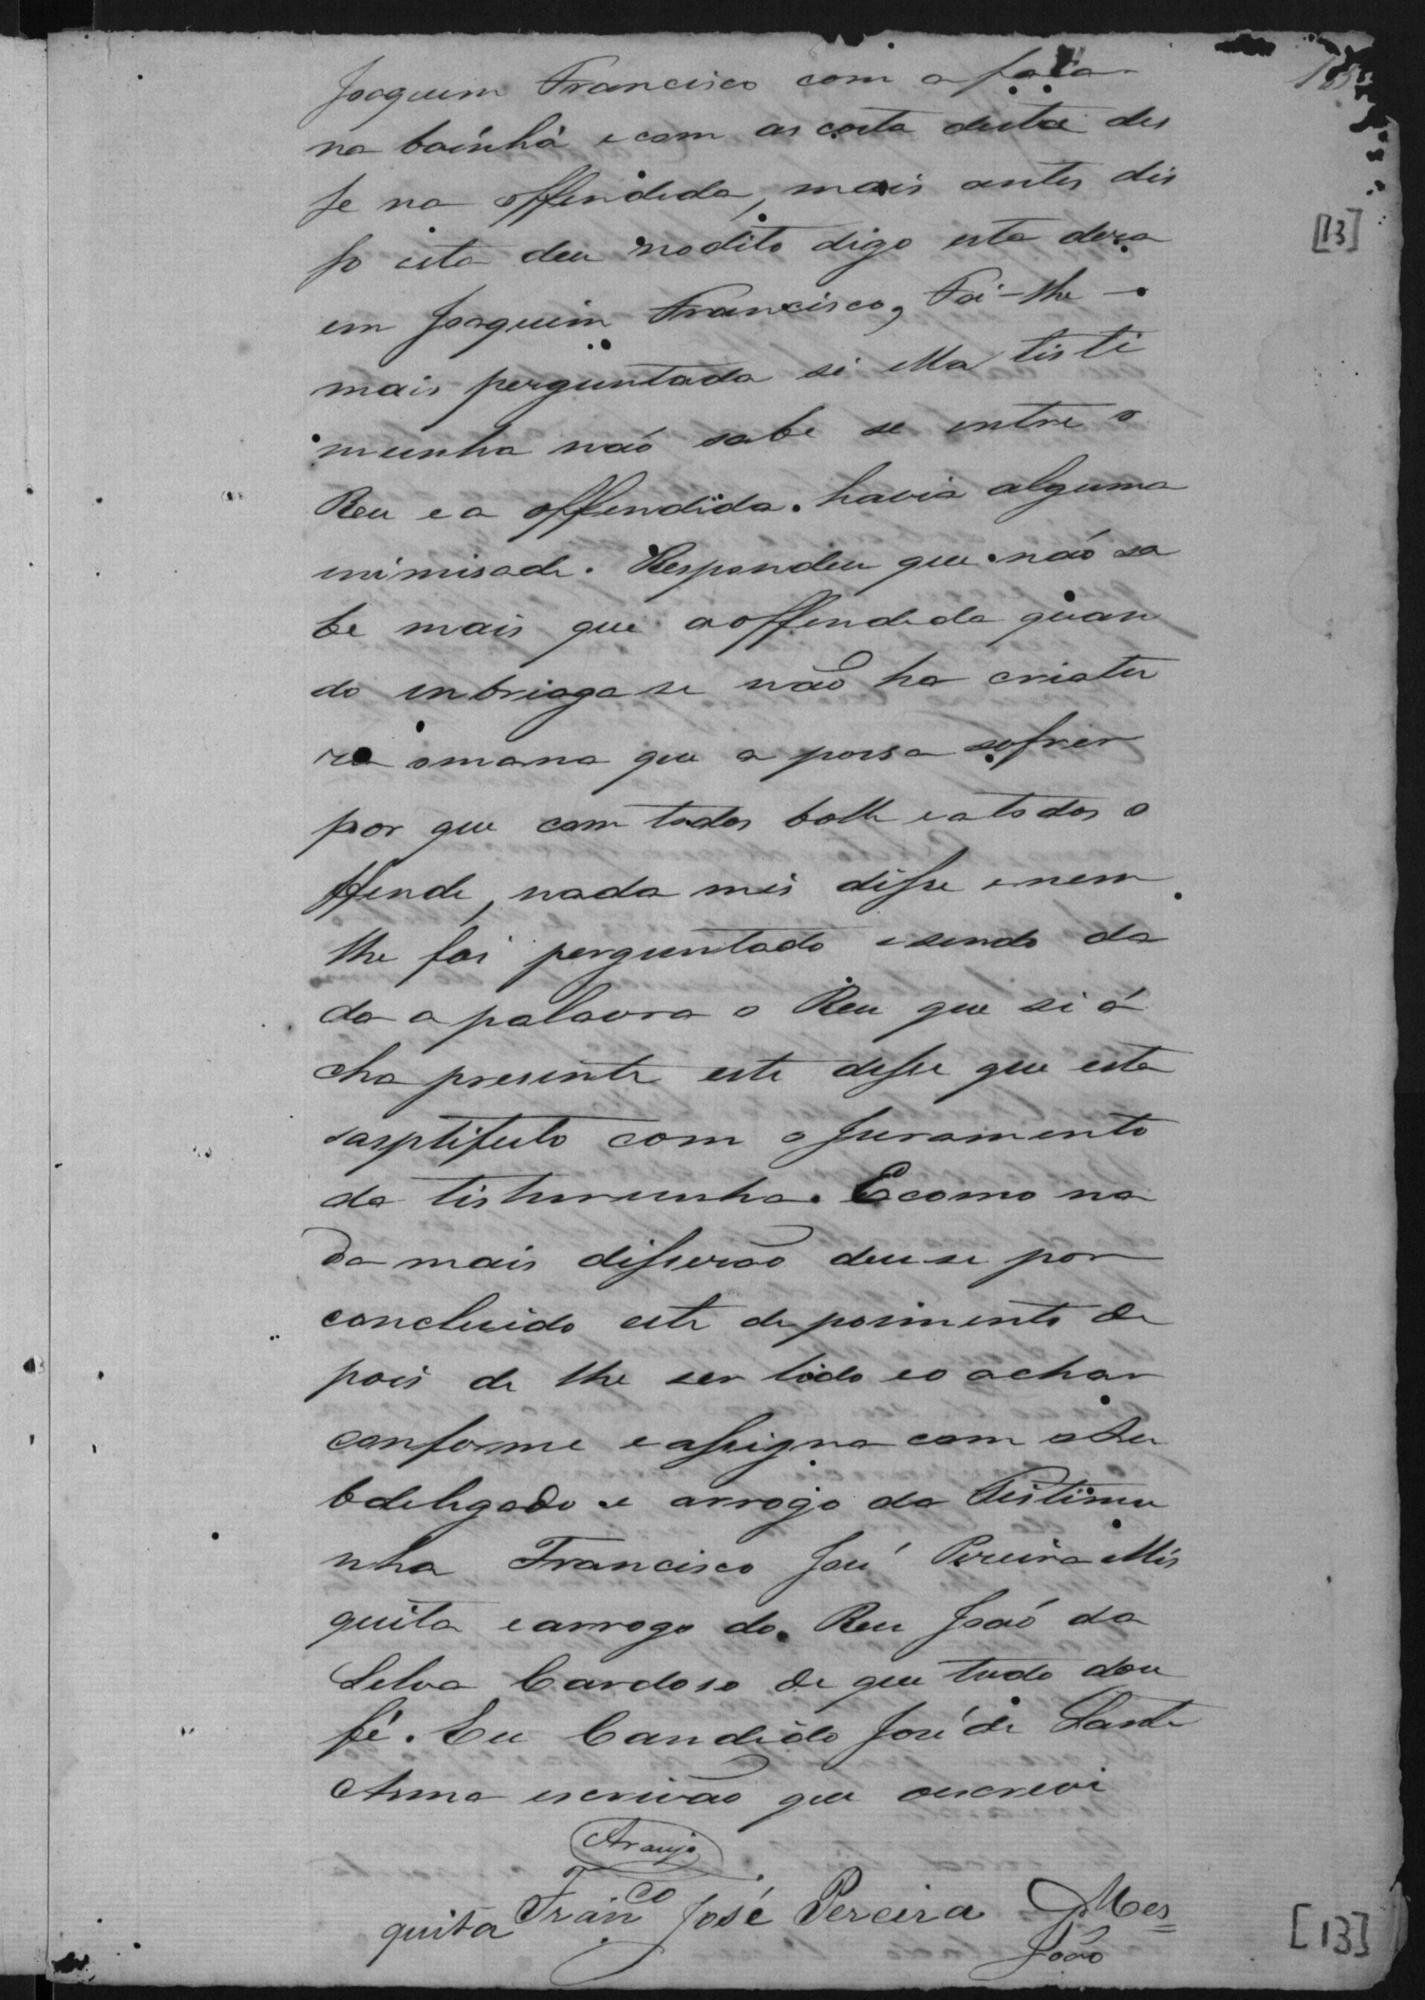 Joaquim Francisco com a faca
na bainha e com as costa desta des
se na offendida, mais antes dis
so esta deu no dito digo esta dera
em Joaquim Francisco, Foi-lhe
mais perguntada si ella tisti
munha não sabe se entre o
Reu e a offendida havia alguma
inimisade. Respondeu que não sa
be mais que a offendida quan
do inbriaga se não ha criatu
ra omana que a possa sofrer
por que com todos bolle e a todos o
ffende, nada mis disse e nem
lhe foi perguntado e sendo da
da a palavra o Reu que si á
cha presente este disse que esta
sasptifeito com o Juramento
da tistimunha. E como na
da mais disserão deu se por
concluido este depoimento de
pois de lhe ser lido e o achar
conforme e assigna com o Su
bdelegado e arrogo da Tistimu
nha Francisco José Pereira Mis
quita e arrogo do Reu João da
Selva Cardoso de que tudo dou
fé. Eu Candido José de Sant
Anna escrivão que o escrevi
Araujo
Fran co José Pereira Mes=
quita
João
[13]
[13]